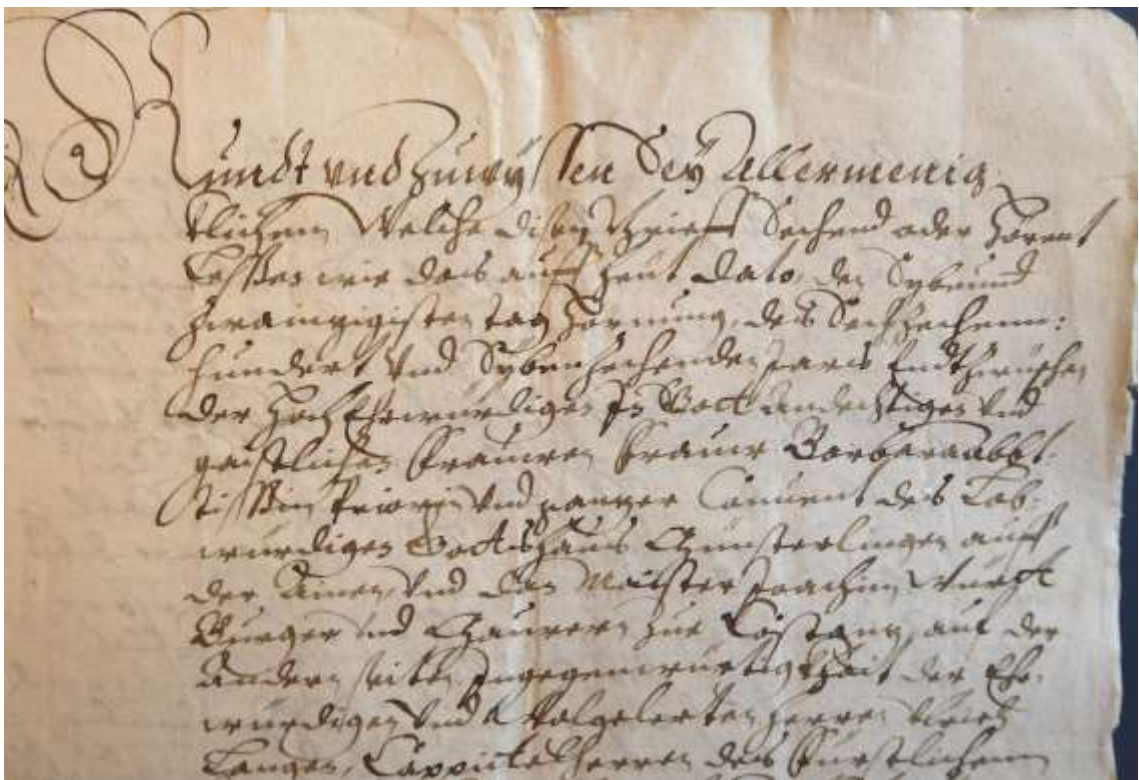 Kundt vnd Zuwyssen Sey Allermenig
klichem Welche disen Brieff Sechend oder Hörent
Lessen wie das auff heut Dato, den Sybenund
Zwaintzigisten tag Hornung, des Sechzechenn:
hundert vnd Sybenzechenden Jars Endtzwüschen
der HochEhrwürdigen In Gott andechtigen vnd
gaistlichen Frauwen Frauw Barbara abbt
tissin Priorin vnd ganzer Conuent des Lob-
würdigen Gottshaus Münsterlingen auff
der Ainen, vnd dem Maister Joachim
Burger vnd Maurern zue Costanz, auf der
Andern seitten Ingegenwürtigkhait der Ehr-
würdigen vnd Wolgelerten Herren Vlrich
Langen, Capitelherren des Fürstlichenn